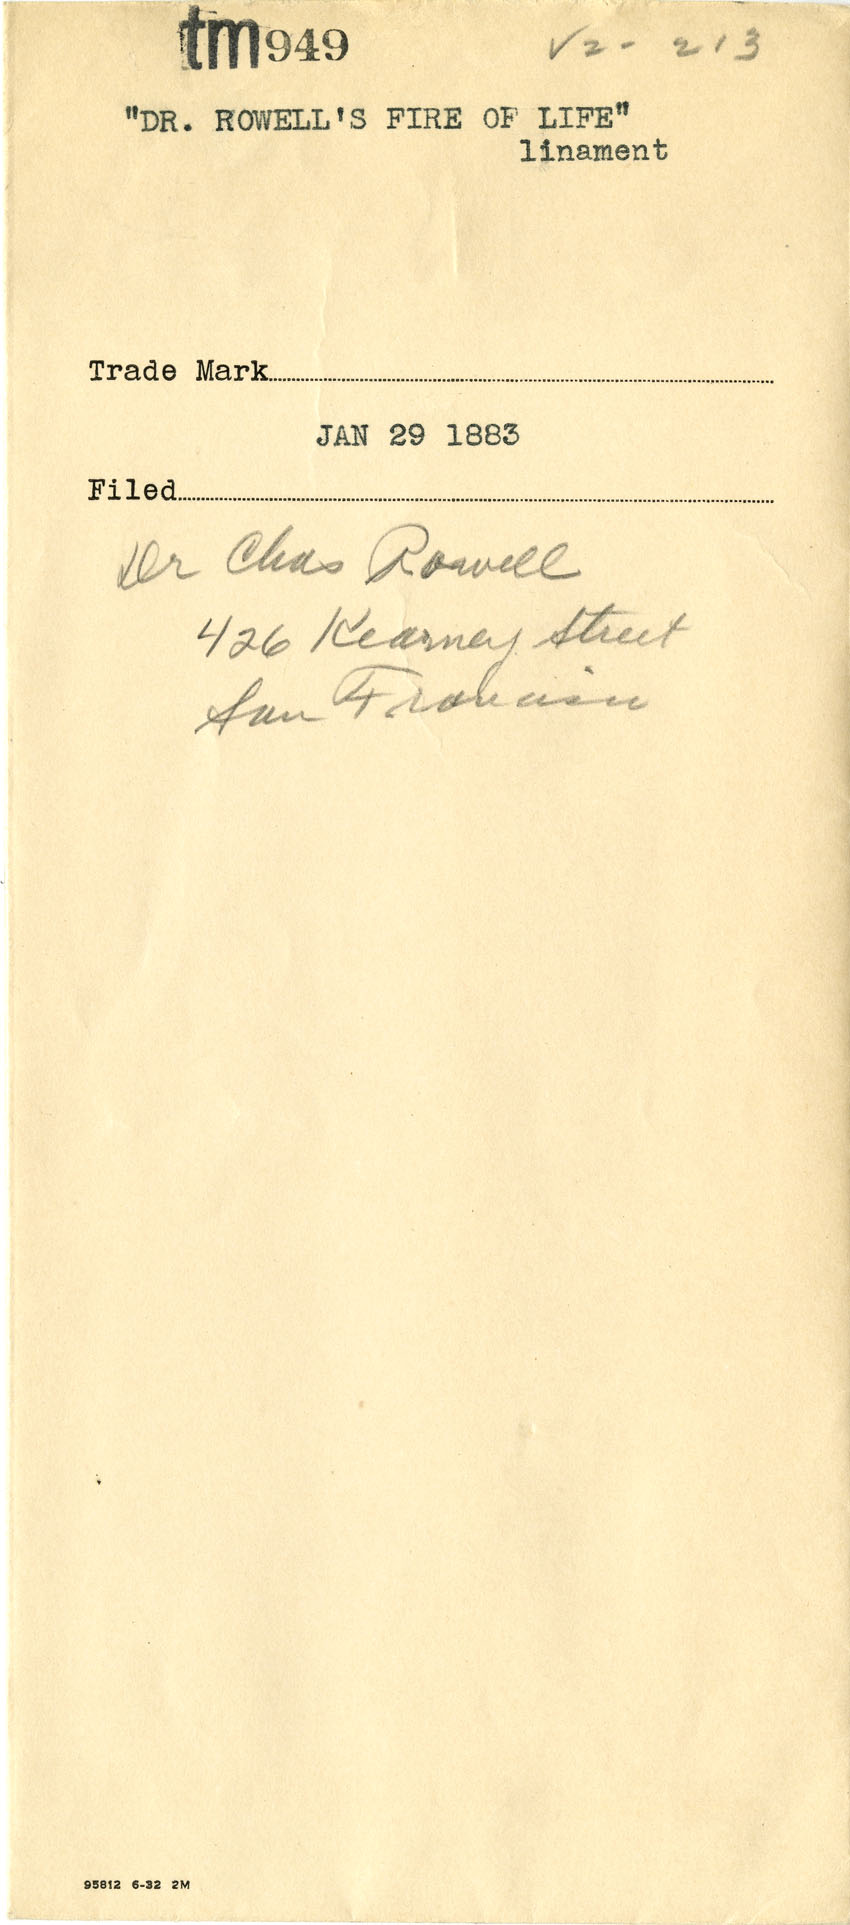 tm949 V2- 213
"DR. ROWELL'S FIRE OF LIFE"
linament
Trade Mark
JAN 29 1883
Filed
Dr Chas Rowell
426 Kearney Street
San Francisco
95812 6-32 2M